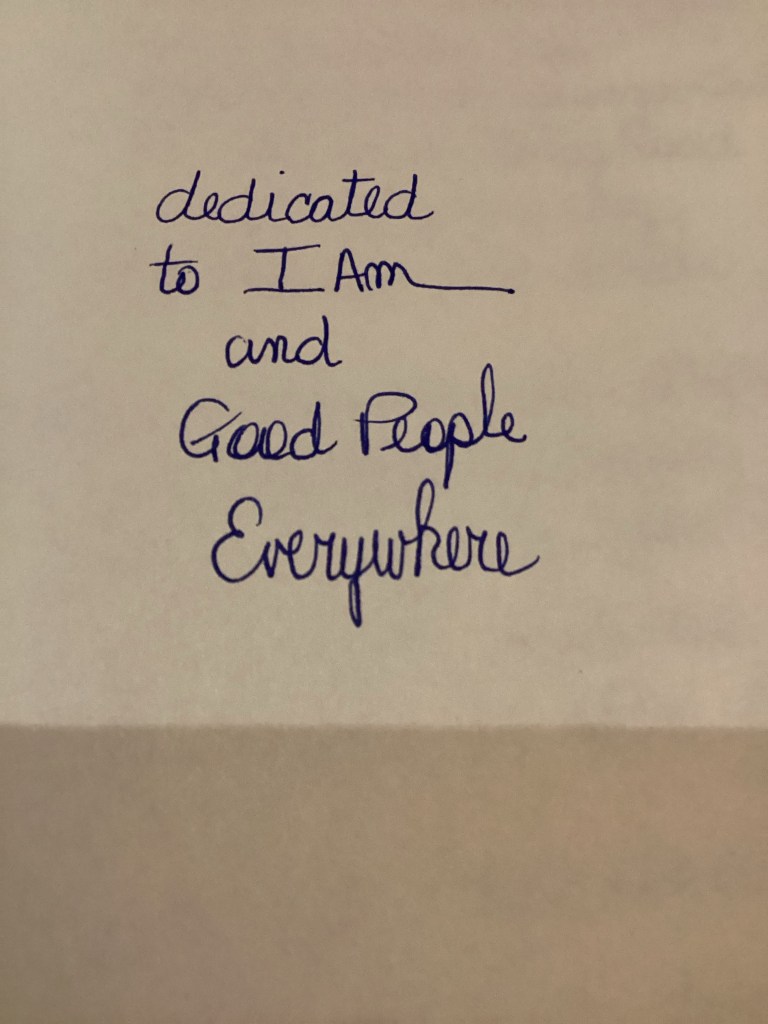 dedicated
to I Am___
and
Good People
Everywhere